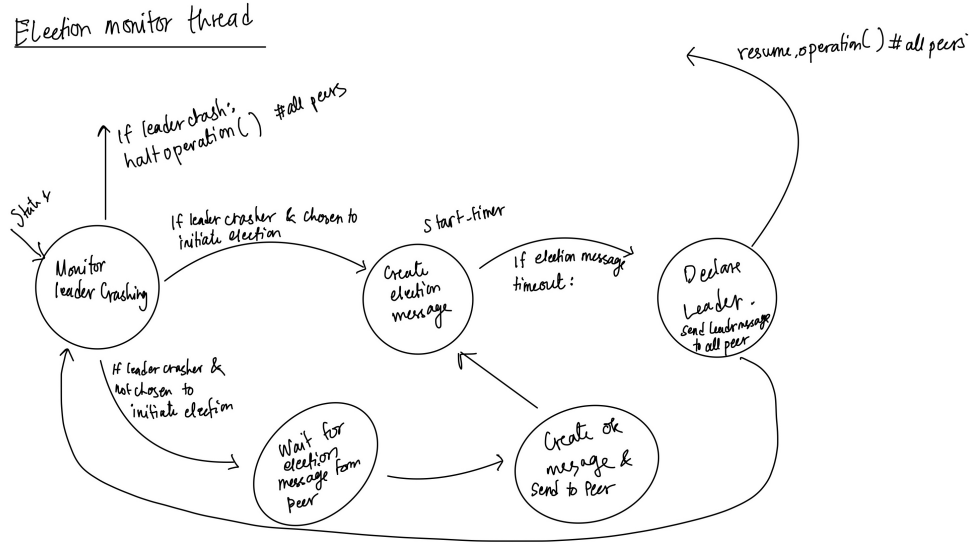 Election monitor thread
resume_operation() # all peers
If leader crash:
halt operation() # all peers
Start
If leader crasher & chosen to
initiate election
Start-timer
Monitor
leader Crashing
Create
election
message
If election message
timeout:
Declare
Leader.
Send leader message
to all peer
If leader crasher &
not chosen to
initiate election
Wait for
election
message form
peer
Create ok
message &
Send to Peer